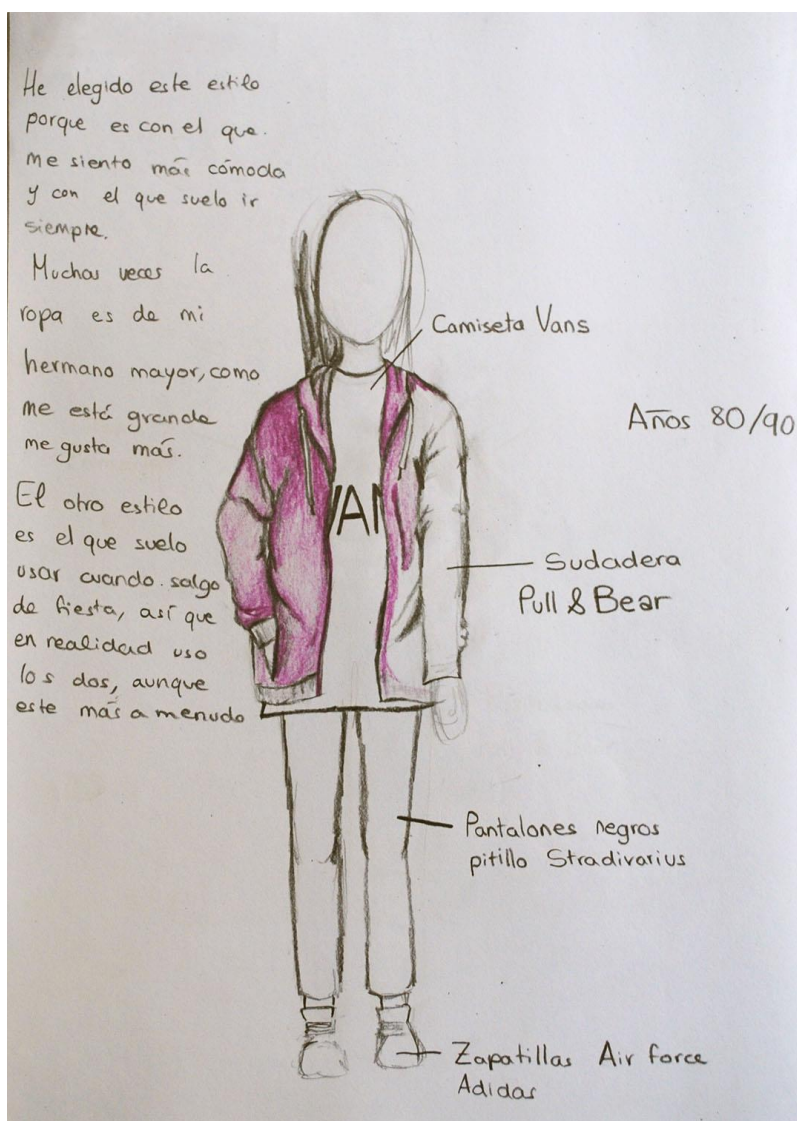 He elegido este estilo
porque es con el que.
me siento más cómoda
y con el que suelo ir
siempre.
Muchas veces la
ropa es de mi
hermano mayor, como
me está grande
me gusta más.
El otro estilo
es el que suelo
usar cuando salgo
de fiesta, así que
en realidad uso
los dos, aunque
este más a menudo
Camiseta Vans
Años 80/90
VAN
Sudadera
Pull & Bear
Pantalones negros
pitillo Stradivarius
Zapatillas Air force
Adidas